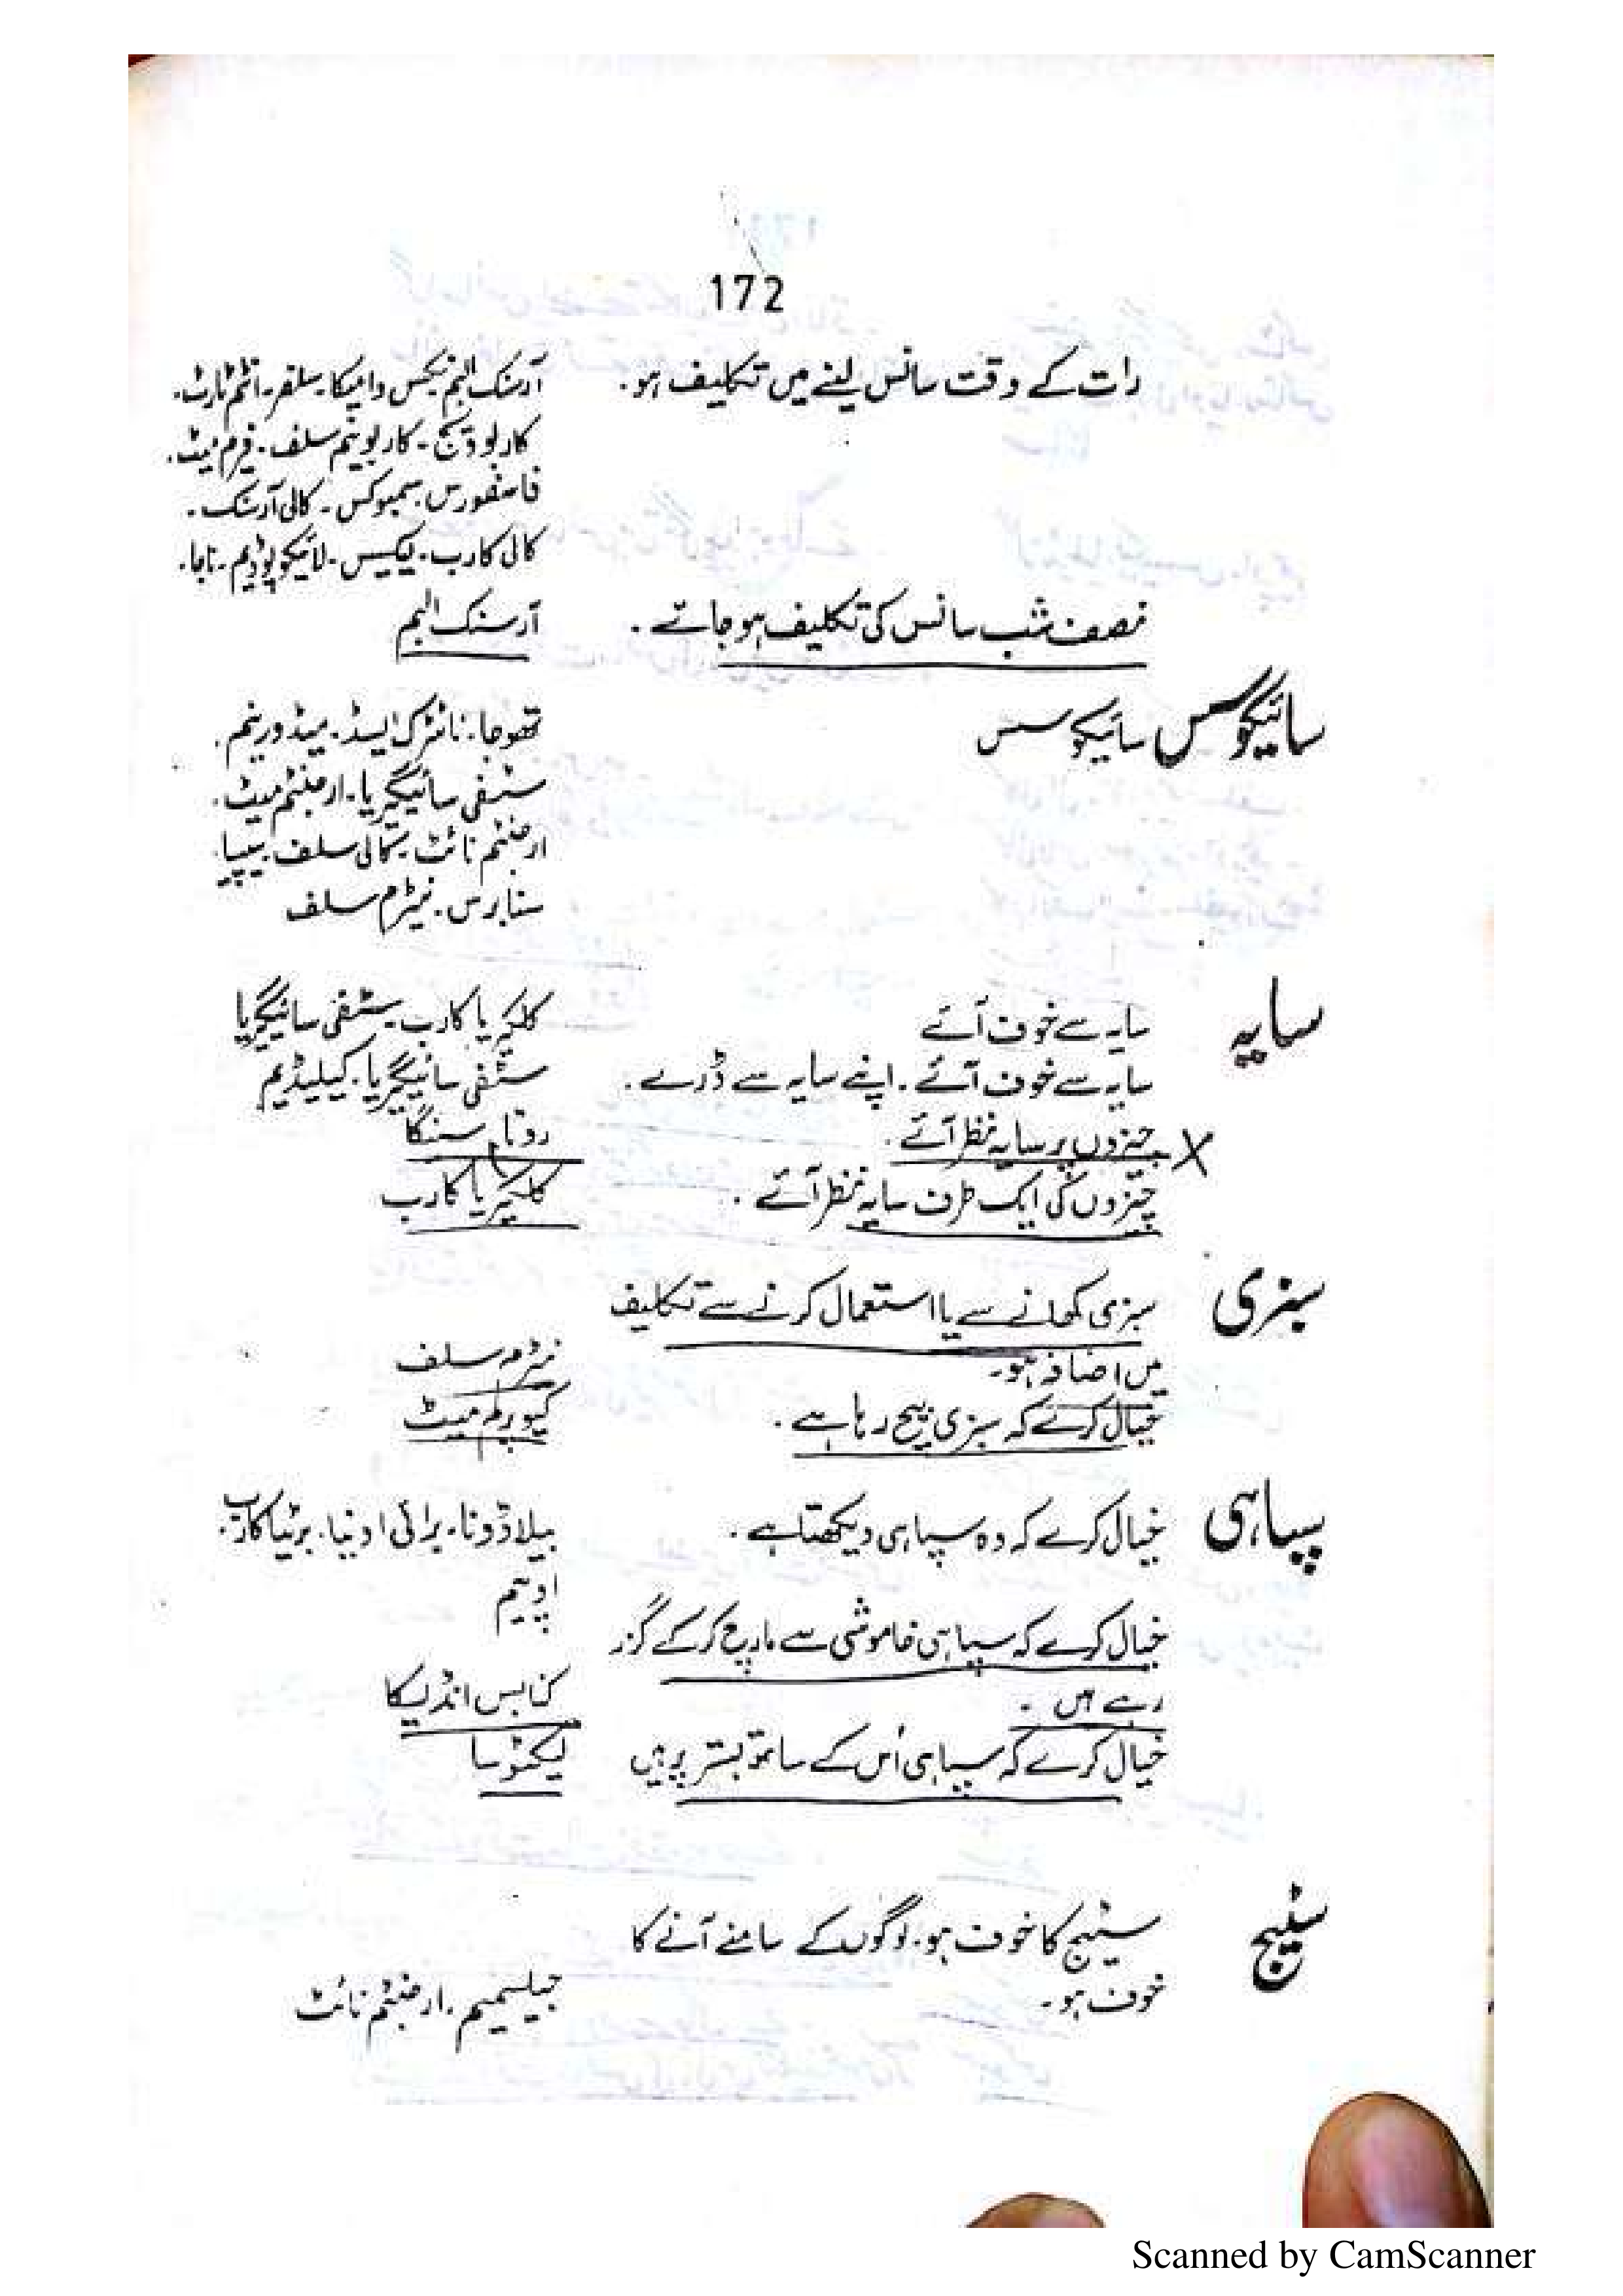 172
رات کے وقت سانس لینے میں تکلیف ہو۔ آرسنک البم۔ نکس وامیکا۔ سلفر۔ انٹم ٹارٹ۔
کاربو ویج۔ کاربونیم سلف۔ فیرم میٹ۔
فاسفورس۔ سمبوکس۔ کالی آرسنک۔
کالی کارب۔ لیکیسس۔ لائیکوپوڈیم۔ ناجا۔
نصف شب سانس کی تکلیف ہو جائے۔ آرسنک البم
سائیکوسس سائیکوسس تھوجا۔ نائٹرک ایسڈ۔ میڈورینم۔
سٹفی سائیگیریا۔ ارجنٹم میٹ۔
ارجنٹم نائٹ۔ کالی سلف۔ سیپیا۔
سنابرس۔ نیٹرم سلف
سایہ سایہ سے خوف آئے کلکیریا کارب۔ سٹفی سائیگیریا
سایہ سے خوف آئے۔ اپنے سایہ سے ڈرے۔ سٹفی سائیگیریا۔ کیلیڈیم
چیزوں پر سایہ نظر آئے۔ سنگا
چیزوں کی ایک طرف سایہ نظر آئے۔ کلکیریا کارب
سبزی سبزی کھانے سے یا استعمال کرنے سے تکلیف
میں اضافہ ہو۔ نیٹرم سلف
خیال کرے کہ سبزی بیچ رہا ہے۔ کیوپرم میٹ
سپاہی خیال کرے کہ وہ سپاہی دیکھتا ہے۔ بیلاڈونا۔ برائی اونیا۔ برئیا کارب۔
اوپیم
خیال کرے کہ سپاہی خاموشی سے مارچ کر کے گزر
رہے ہیں۔ کنابس انڈیکا
خیال کرے کہ سپاہی اُس کے ساتھ بستر پر ہیں لیکٹوسا
سٹیج سٹیج کا خوف ہو۔ لوگوں کے سامنے آنے کا
خوف ہو۔ جیلسیمیم۔ ارجنٹم نائٹ
Scanned by CamScanner